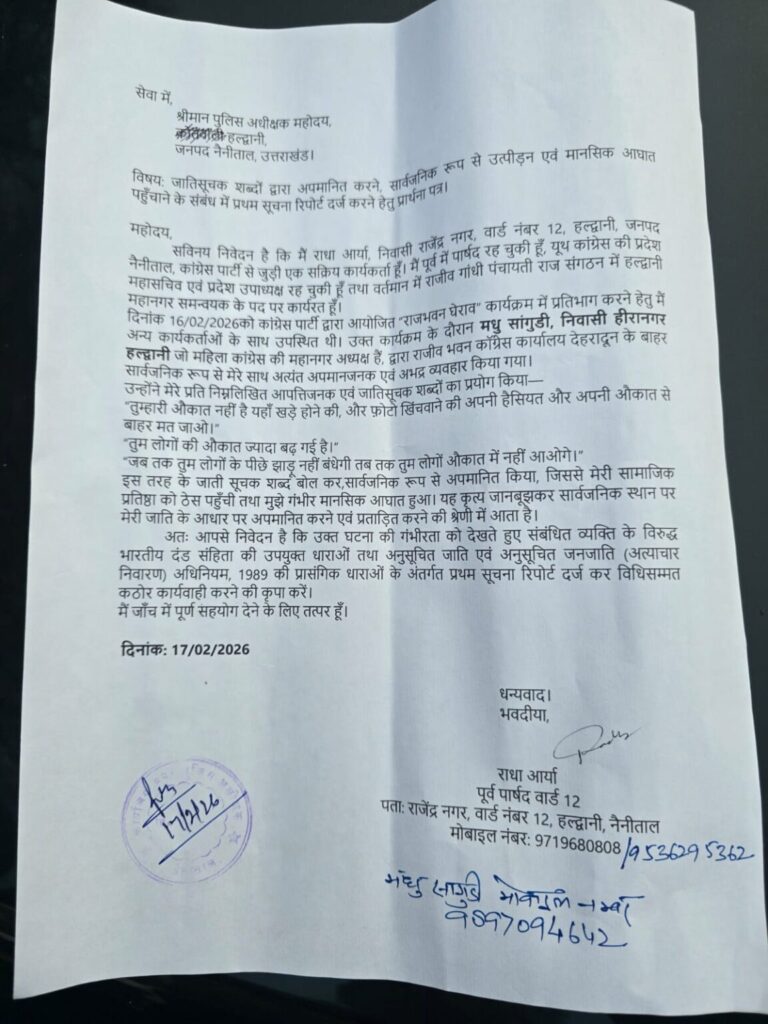 सेवा में,
श्रीमान पुलिस अधीक्षक महोदय,
हल्द्वानी,
जनपद नैनीताल, उत्तराखंड।
विषय: जातिसूचक शब्दों द्वारा अपमानित करने, सार्वजनिक रूप से उत्पीड़न एवं मानसिक आघात
पहुँचाने के संबंध में प्रथम सूचना रिपोर्ट दर्ज करने हेतु प्रार्थना पत्र।
महोदय,
सविनय निवेदन है कि मैं राधा आर्या, निवासी राजेंद्र नगर, वार्ड नंबर 12, हल्द्वानी, जनपद
नैनीताल, कांग्रेस पार्टी से जुड़ी एक सक्रिय कार्यकर्ता हूँ। मैं पूर्व में पार्षद रह चुकी हूँ, यूथ कांग्रेस की प्रदेश
महासचिव एवं प्रदेश उपाध्यक्ष रह चुकी हूँ तथा वर्तमान में राजीव गांधी पंचायती राज संगठन में हल्द्वानी
महानगर समन्वयक के पद पर कार्यरत हूँ।
दिनांक 16/02/2026को कांग्रेस पार्टी द्वारा आयोजित “राजभवन घेराव” कार्यक्रम में प्रतिभाग करने हेतु मैं
अन्य कार्यकर्ताओं के साथ उपस्थित थी। उक्त कार्यक्रम के दौरान मधु सांगुडी, निवासी हीरानगर
हल्द्वानी जो महिला कांग्रेस की महानगर अध्यक्ष हैं, द्वारा राजीव भवन काँग्रेस कार्यालय देहरादून के बाहर
सार्वजनिक रूप से मेरे साथ अत्यंत अपमानजनक एवं अभद्र व्यवहार किया गया।
उन्होंने मेरे प्रति निम्नलिखित आपत्तिजनक एवं जातिसूचक शब्दों का प्रयोग किया—
“तुम्हारी औकात नहीं है यहाँ खड़े होने की, और फ़ोटो खिंचवाने की अपनी हैसियत और अपनी औकात से
बाहर मत जाओ।”
“तुम लोगों की औकात ज्यादा बढ़ गई है।”
“जब तक तुम लोगों के पीछे झाड़ू नहीं बंधेगी तब तक तुम लोगों औकात में नहीं आओगे।”
इस तरह के जाती सूचक शब्द बोल कर,सार्वजनिक रूप से अपमानित किया, जिससे मेरी सामाजिक
प्रतिष्ठा को ठेस पहुँची तथा मुझे गंभीर मानसिक आघात हुआ। यह कृत्य जानबूझकर सार्वजनिक स्थान पर
मेरी जाति के आधार पर अपमानित करने एवं प्रताड़ित करने की श्रेणी में आता है।
अतः आपसे निवेदन है कि उक्त घटना की गंभीरता को देखते हुए संबंधित व्यक्ति के विरुद्ध
भारतीय दंड संहिता की उपयुक्त धाराओं तथा अनुसूचित जाति एवं अनुसूचित जनजाति (अत्याचार
निवारण) अधिनियम, 1989 की प्रासंगिक धाराओं के अंतर्गत प्रथम सूचना रिपोर्ट दर्ज कर विधिसम्मत
कठोर कार्यवाही करने की कृपा करें।
मैं जाँच में पूर्ण सहयोग देने के लिए तत्पर हूँ।
दिनांक: 17/02/2026
धन्यवाद।
भवदीया,
राधा आर्या
पूर्व पार्षद वार्ड 12
पता: राजेंद्र नगर, वार्ड नंबर 12, हल्द्वानी, नैनीताल
मोबाइल नंबर: 9719680808/9536295362
मधु सांगुडी मोबाइल नम्बर
9897094642
17/2/26